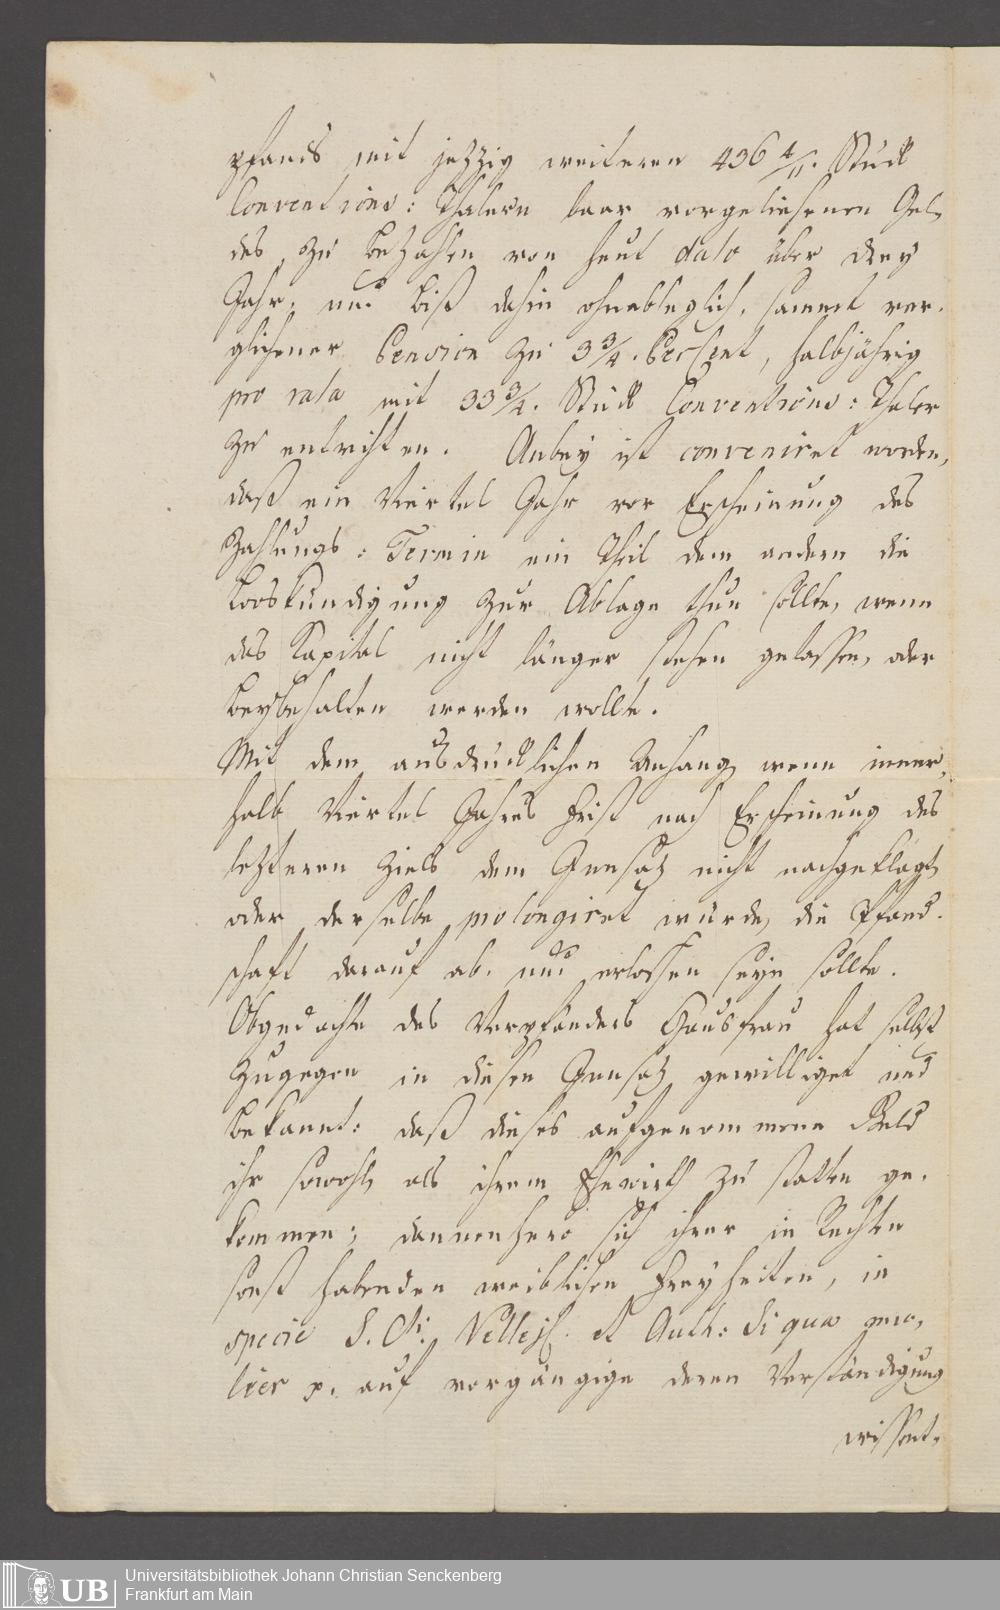 pfands mit jezzig weiteren 436 4/11. Stück
Conventions: Thalern baar vorgeliehenen Gel„
des, zu bezahlen von heut dato über drey
Jahr, und biß dahin ohnableglich, sammt ver„
glichener Pension zu 3 3/4. PerCent, halbjährig
pro rata mit 33 3/4. Stück Conventions: Thaler
zu entrichten. Anbey ist conveniret worden,
daß ein Viertel Jahr vor Erscheinung des
Zahlungs: Termin ein Theil dem andern die
Looskündigung zur Ablage thun sollte, wenn
das Kapital nicht länger stehen gelassen, oder
beybehalten werden wollte.
Mit dem ausdrücklichen Anhang, wenn inner„
halb Viertel Jahres Frist nach Erscheinung des
lezteren Ziels dem Innsatz nicht nachgeklagt,
oder derselbe prolongiret würde, die Pfand„
schaft darauf ab„ und erloschen seyn sollte.
Obgedachte des Verpfänders Hausfrau hat selbst
zugegen in diesen Innsatz gewilliget und
bekannt: daß dieses aufgenommene Geld
ihr sowohl, als ihrem Ehewirth zu statten ge„
kommen; dannenhero sich ihrer in Rechten
sonst habenden weiblichen Freyheiten, in
specie S. Cti. Vellej. et Auth: Si qua mu„
lier p. auf vorgängige deren Verständigung
wissent„
Universitätsbibliothek Johann Christian Senckenberg
Frankfurt am Main
UB